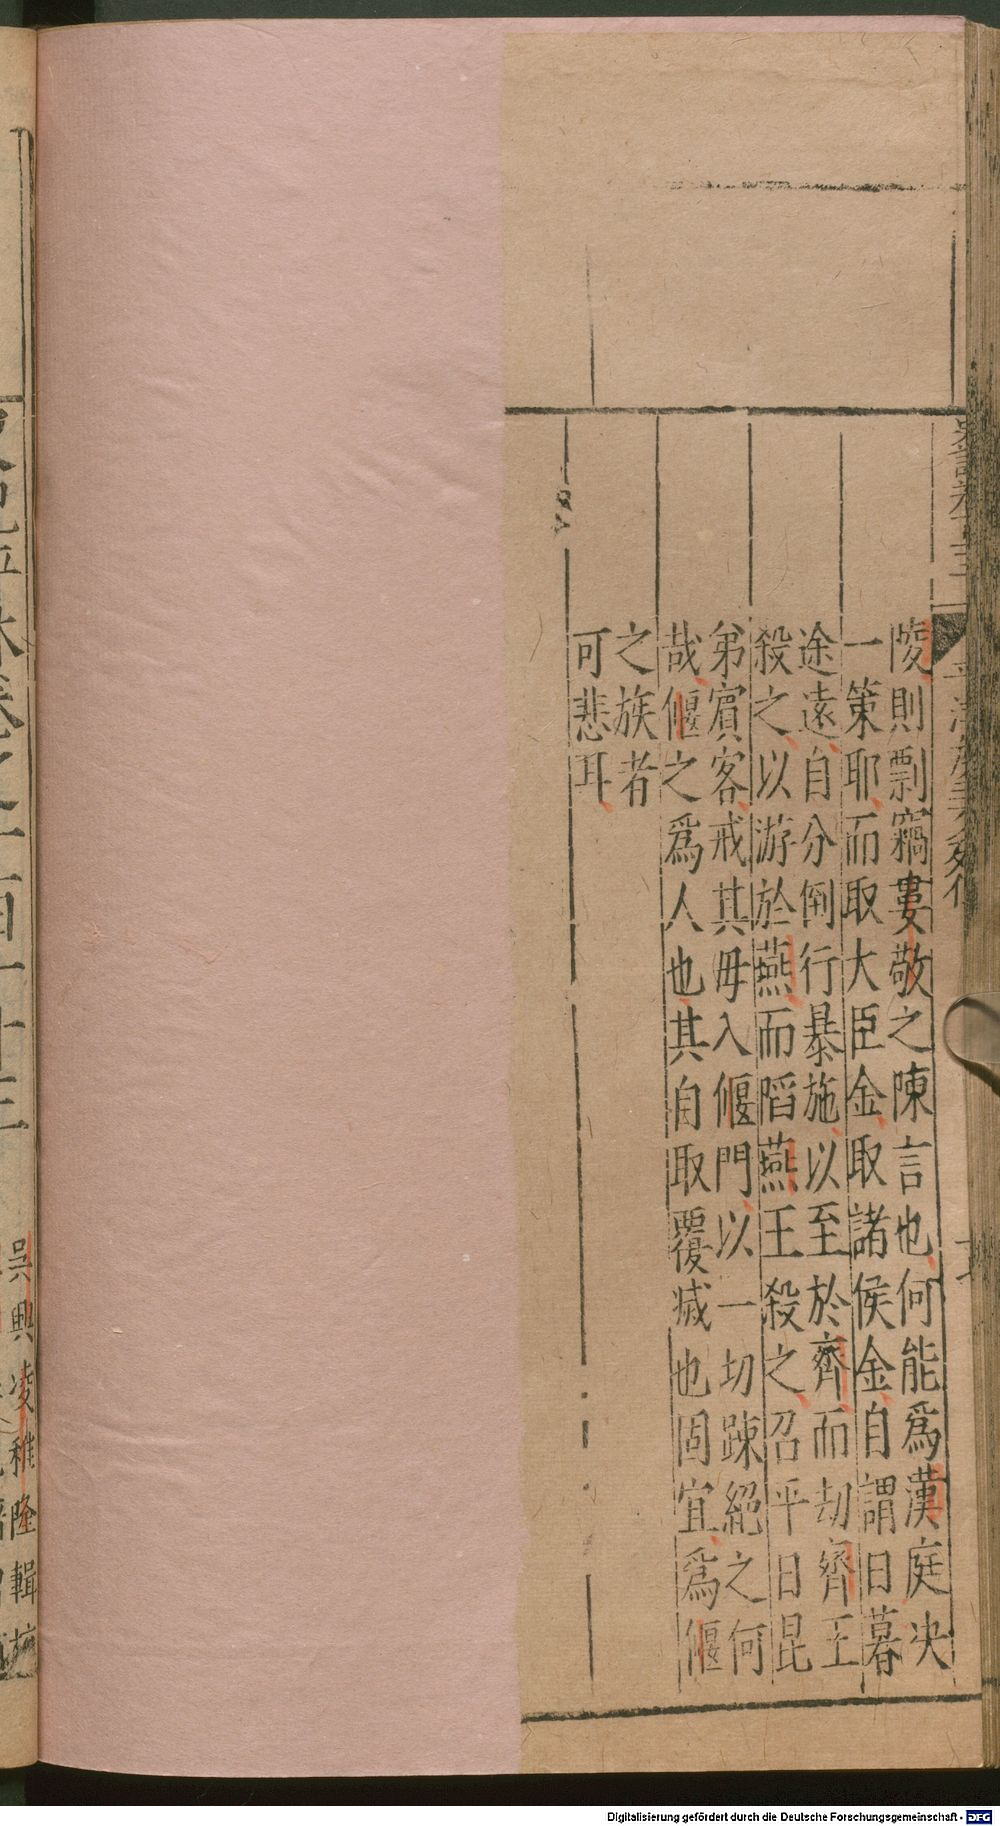 陵則剽竊婁敬之陳言也何能爲漢庭决
一策耶而取大臣金取諸侯金自謂日暮
途遠自分倒行暴施以至於齊而劫齊王
殺之以游於燕而䧟燕王殺之召平日昆
弟賓客戒其毋入偃門以一切踈絕之何
哉偃之爲人也其自取覆滅也固宜爲偃
之族者
可悲耳
吳興凌稚隆輯校
Digitalisierung gefördert durch die Deutsche Forschungsgemeinschaft - DFG